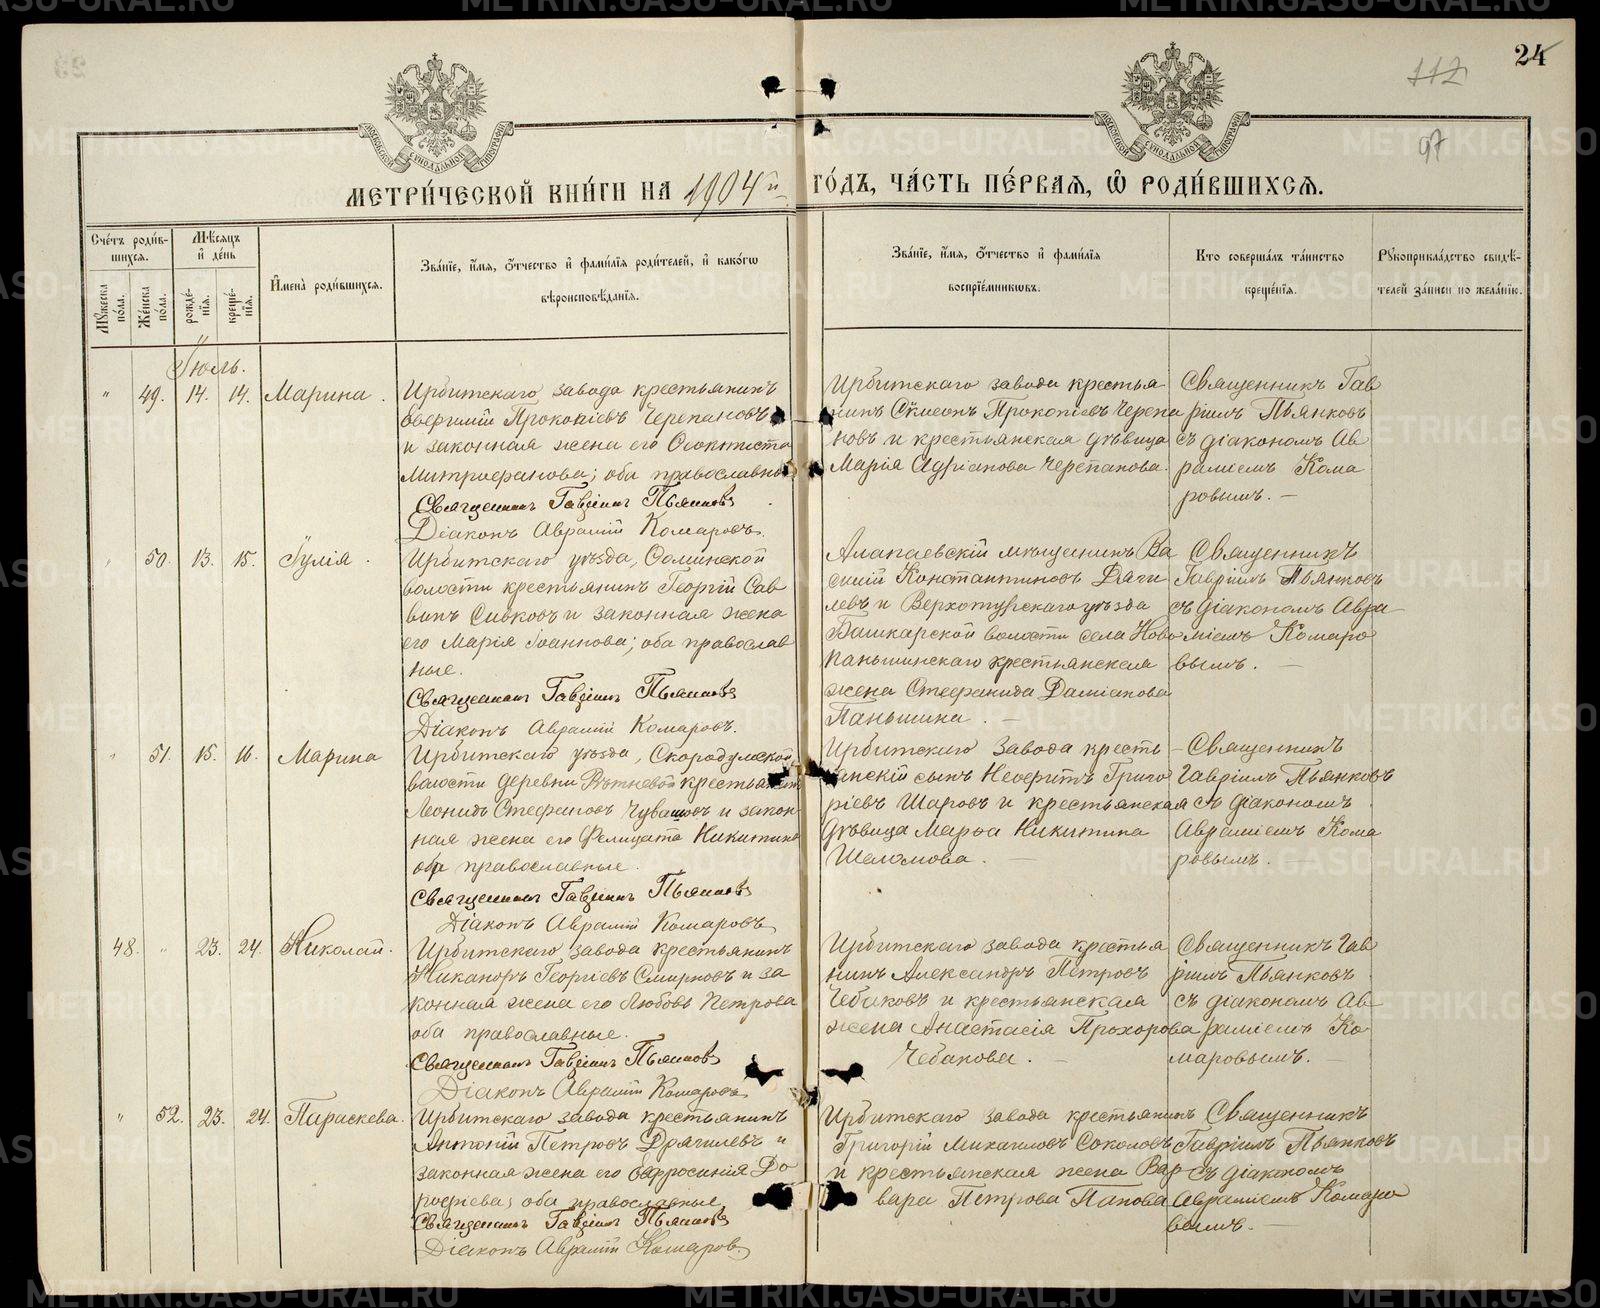 24
112
97
МЕТРИ́ЧЕСКОЙ КНИ́ГИ НА 1904й ГО́ДЪ, ЧА́СТЬ ПЕ́РВАѦ, Ѽ РОДИ́ВШИХСѦ.
Сче́тъ роди́вшихсѧ.
Мꙋ́жеска по́ла.
Же́нска по́ла.
Мѣ́сѧцъ и҆ де́нь
рожде́нїѧ.
креще́нїѧ.
И҆мена̀ роди́вшихсѧ.
Зва́нїе, и҆́мѧ, ѻ҆́тчество и҆ фами́лїѧ роди́телей, и҆ како́гѡ
вѣроисповѣ́данїѧ.
Зва́нїе, и҆́мѧ, ѻ҆́тчество и҆ фами́лїѧ
воспрїе́мникѡвъ.
Кто̀ соверша́лъ та́инство
креще́нїѧ.
Рꙋкоприкла́дство свидѣ́-
телей за́писи по жела́нїю.
Іюль.
" 49. 14. 14. Марина.
Ирбитскаго завода крестьянинъ
Евергилій Прокопіевъ Черепановъ
и законная жена его Ѳеоктиста
Митрофанова; оба православные
Священникъ Гавріилъ Пьянковъ
Діаконъ Аврамій Комаровъ.
Ирбитскаго завода крестья
нинъ Сѵмеонъ Прокопіевъ Черепа
новъ и крестьянская дѣвица
Марія Адріанова Черепанова.
Священникъ Гав
ріилъ Пьянковъ
съ діакономъ Ав
раміемъ Кома
ровымъ. —
" 50. 13. 15. Іулія.
Ирбитскаго уѣзда,
волости крестьянинъ Георгій Сав
винъ Сивковъ и законная жена
его Марія Іоаннова; оба православ
ные.
Священникъ Гавріилъ Пьянковъ
Діаконъ Аврамій Комаровъ.
Алапаевскій мѣщанинъ Ва
силій Константиновъ Дяги
левъ и Верхотурскаго уѣзда
Башкарской волости села Ново
паньшинскаго крестьянская
жена Стефанида Даміанова
Паньшина. —
Священникъ
Гавріилъ Пьянковъ
съ діакономъ Авра
міемъ Комаро
вымъ. —
" 51. 15. 16. Марина
Ирбитскаго уѣзда, Скородумской
волости деревни крестьянинъ
Леонидъ Стефановъ Чувашовъ и закон-
ная жена его Фелицата Никитина
оба православные.
Священникъ Гавріилъ Пьянковъ
Діаконъ Аврамій Комаровъ
Ирбитскаго завода кресть-
янскій сынъ Неофитъ Григо
ріевъ Шаровъ и крестьянская
дѣвица Марѳа Никитина
Шеломова. —
Священникъ
Гавріилъ Пьянковъ
съ діакономъ
Авраміемъ Кома
ровымъ. —
48. " 23. 24. Николай.
Ирбитскаго завода крестьянинъ
Никаноръ Георгіевъ Смирновъ и за
конная жена его Любовь Петрова
оба православные.
Священникъ Гавріилъ Пьянковъ
Діаконъ Аврамій Комаровъ
Ирбитскаго завода крестья
нинъ Александръ Петровъ
Чебаковъ и крестьянская
жена Анастасія Прохорова
Чебакова. —
Священникъ Гав
ріилъ Пьянковъ
съ діакономъ Ав
раміемъ Ко
маровымъ. —
" 52. 23. 24. Параскева.
Ирбитскаго завода крестьянинъ
Антоній Петровъ Дрягилевъ и
законная жена его Евфросинія До
роѳеева; оба православные
Священникъ Гавріилъ Пьянковъ
Діаконъ Аврамій Комаровъ.
Ирбитскаго завода крестьянинъ
Григорій Михаиловъ Соколовъ
и крестьянская жена Вар
вара Петрова Папова
Священникъ
Гавріилъ Пьянковъ
съ діакономъ
Авраміемъ Комаро
вымъ. —